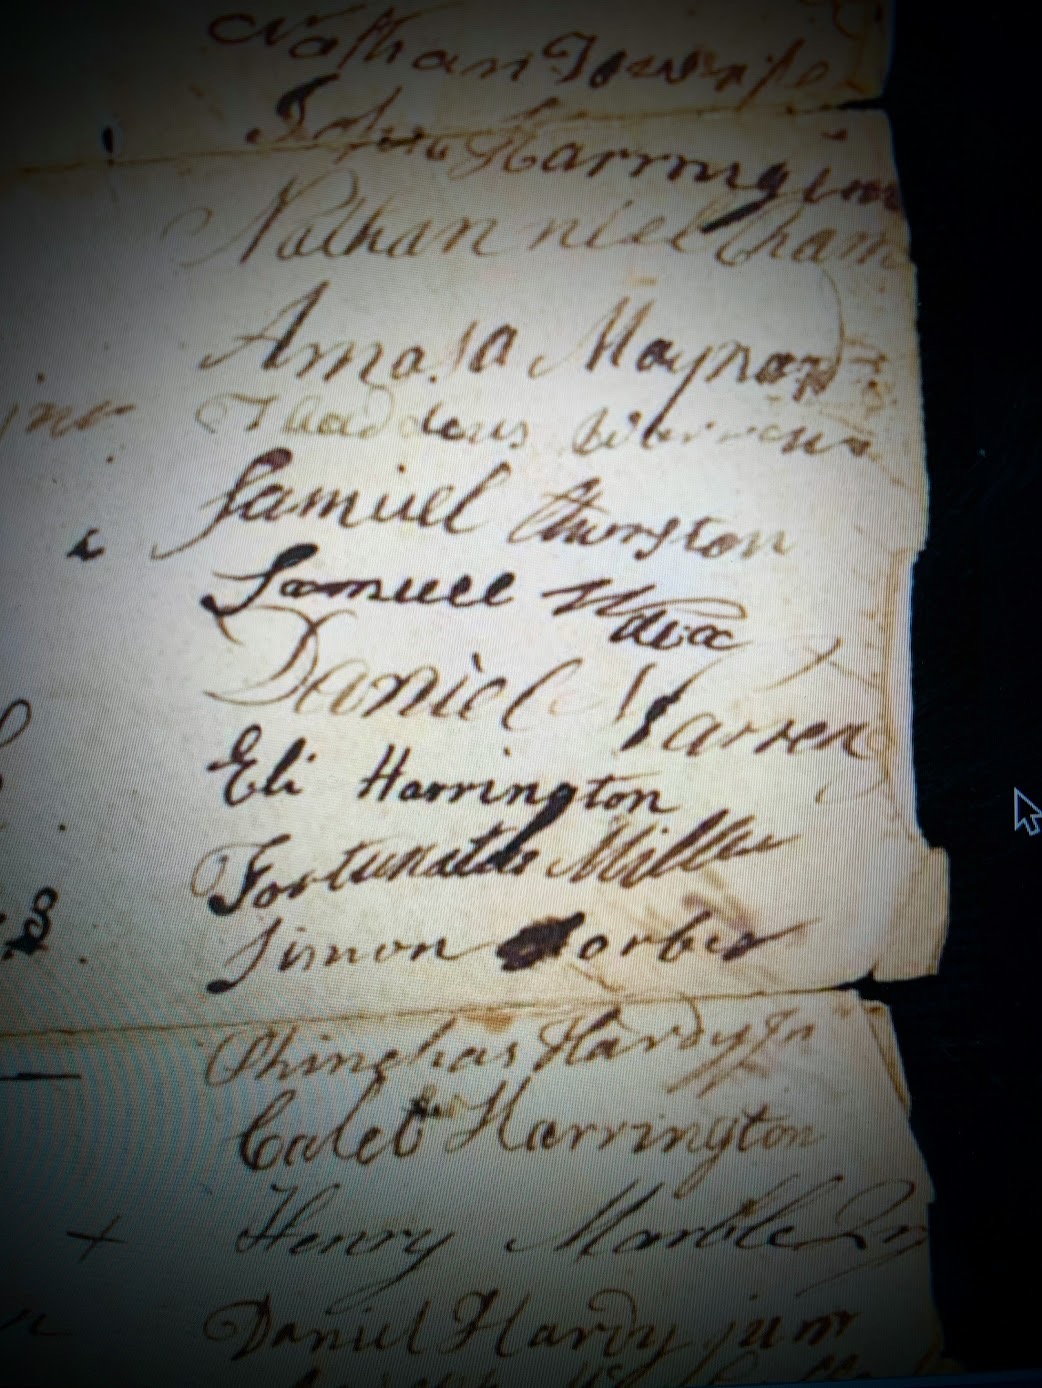 Nathan
John Harringin
Nathan niel Cham
Amasa Maynard
Thaddeus
Samuel Thurston
Samuell
Daniel Warren
Eli Harrington
Fortunatus Miller
Simon Forbes
Phinehas Hardy Jr
Caleb Harrington
Henry Marble Jn
Daniel Hardy junr